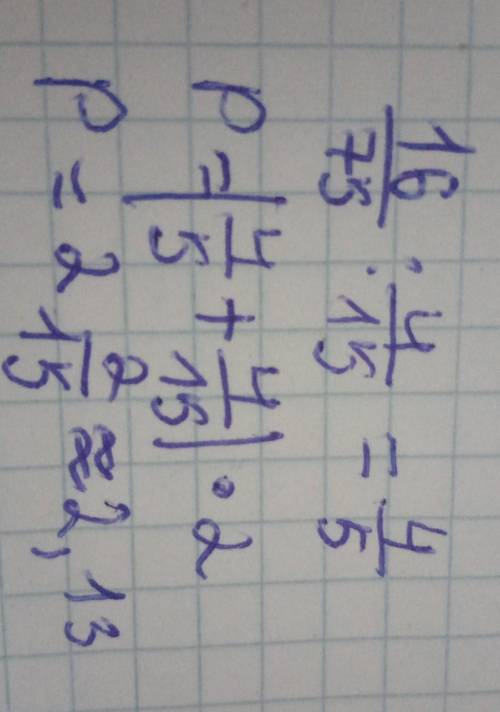 16/75 : 4/15 = 4/5
P = (4/5 + 4/15) · 2
P = 2 2/15 ≈ 2,13